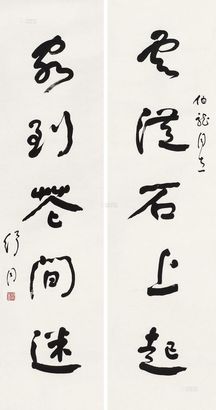 雲從石上起
伯龍同志
客到花間迷
舒同